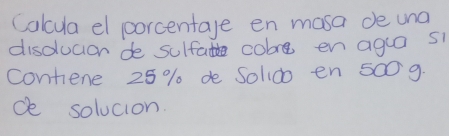 Calcula el porcentaje en masa de una
disolucion de sulfato cobre en agua si
contiene 25% de Solido en 500 g.
de solucion.